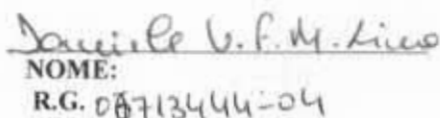 Daniele V. F. M. Lima
NOME:
R.G. 05713444-04